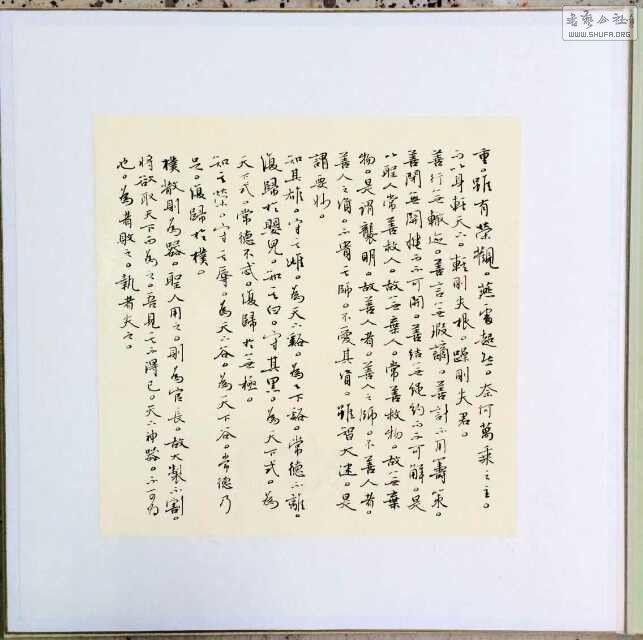 重。雖有榮觀。燕處超然。奈何萬乘之主。
而以身輕天下。輕則失根。躁則失君。
善行無轍迹。善言無瑕謫。善計不用籌策。
善閉無關楗而不可開。善結無繩約而不可解。是
以聖人常善救人。故無棄人。常善救物。故無棄
物。是謂襲明。故善人者。善人之師。不善人者。
善人之資。不貴其師。不愛其資。雖智大迷。是
謂要妙。
知其雄。守其雌。為天下谿。為天下谿。常德不離。
復歸於嬰兒。知其白。守其黑。為天下式。為
天下式。常德不忒。復歸於無極。
知其榮。守其辱。為天下谷。為天下谷。常德乃
足。復歸於樸。
樸散則為器。聖人用之。則為官長。故大製不割。
將欲取天下而為之。吾見其不得已。天下神器。不可為
也。為者敗之。執者失之。
书艺公社
WWW.SHUFA.ORG